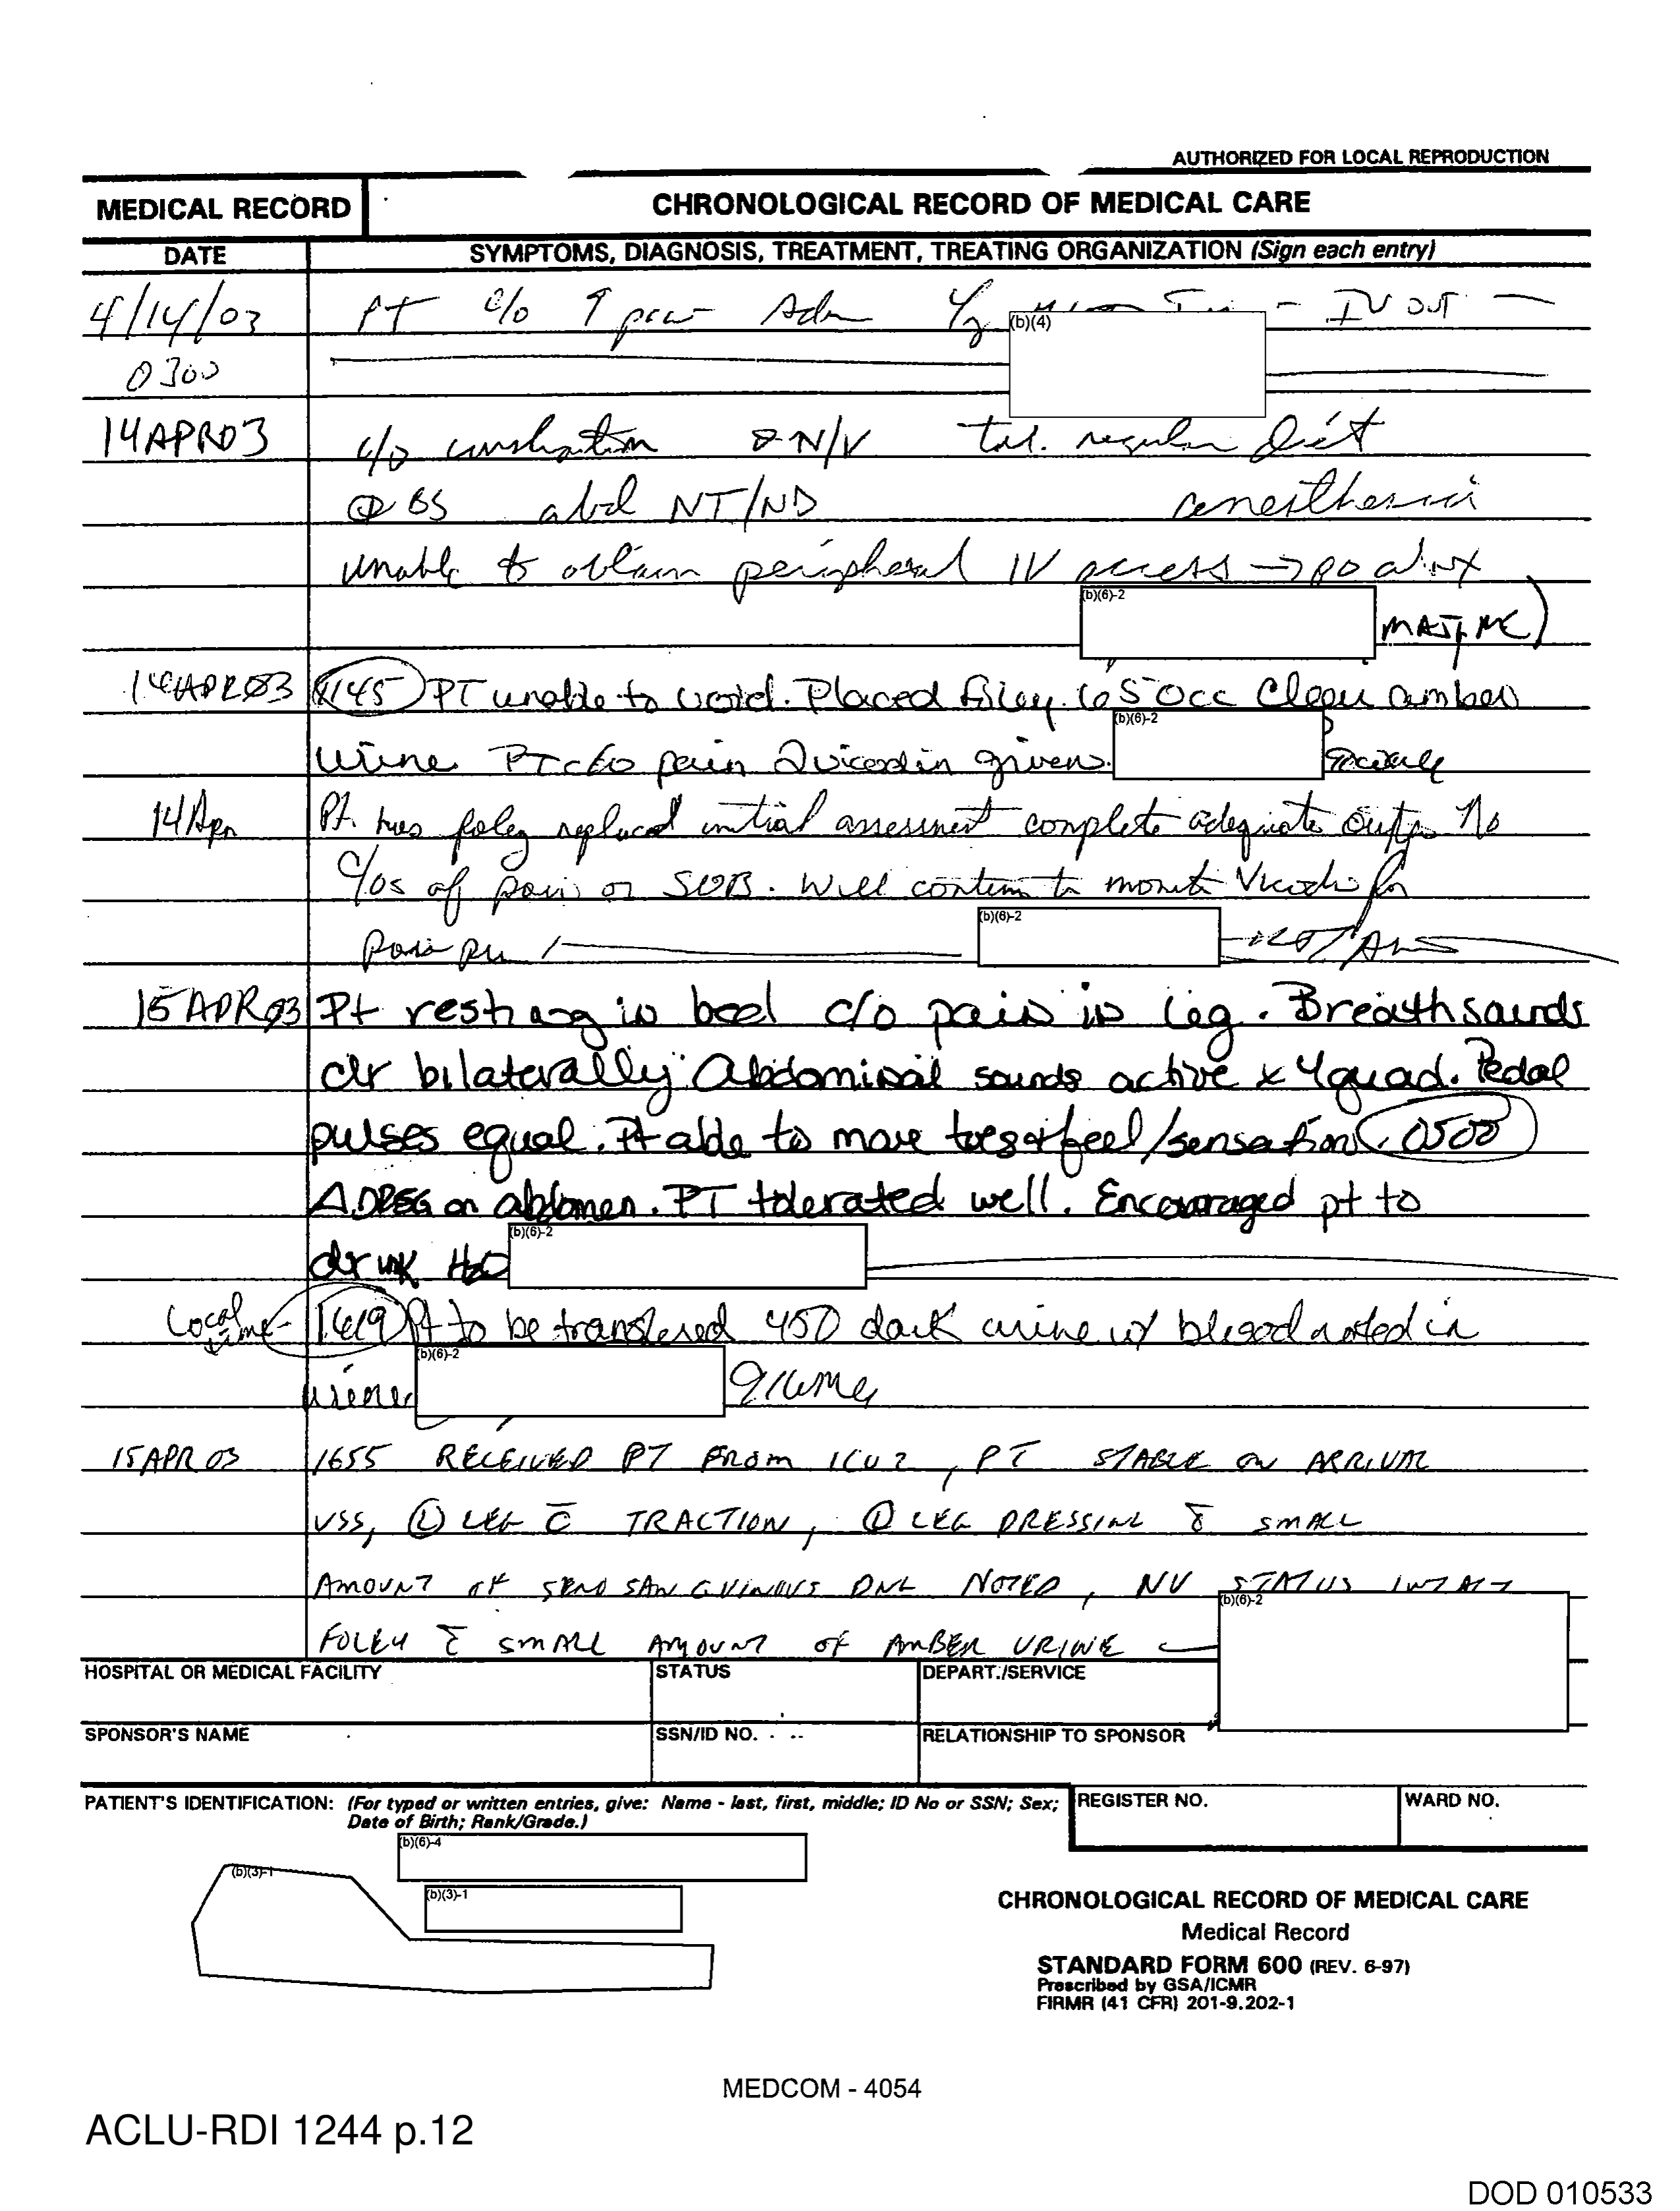 AUTHORIZED FOR LOCAL REPRODUCTION
MEDICAL RECORD
CHRONOLOGICAL RECORD OF MEDICAL CARE
DATE
SYMPTOMS, DIAGNOSIS, TREATMENT, TREATING ORGANIZATION (Sign each entry)
4/14/03 PT c/o ↑ pain - IV OUT
(b)(4)
0300
14APR03 c/o constipation N/V tol. regular diet
BS abd NT/ND anesthesia
unable to obtain peripheral IV access → po
(b)(6)-2
MAJ, MC
14APR03 1145 PT unable to void. Placed foley. 650cc Clear amber
(b)(6)-2
urine PT c/o pain 2 vicodin given.
14Apr Pt. has foley replaced initial assessment complete adequate output No
c/os of pain or SOB. Will continue to monitor Vicodin for
(b)(6)-2
pain prn
15APR03 Pt resting in bed c/o pain in leg. Breathsounds
clr bilaterally Abdominal sounds active x 4quad. Pedal
pulses equal. Pt able to move toes + feel/sensation. 0500
Δ DRSG on abdomen. PT tolerated well. Encouraged pt to
(b)(6)-2
drink H2O
Local time- 1619 Pt to be transfered 450 dark urine w/ blood noted in
(b)(6)-2
urine 91WM6
15APR03 1655 RECEIVED PT FROM ICU2, PT STABLE ON ARRIVAL
VSS, Ⓛ LEG c̄ TRACTION, Ⓛ LEG DRESSING c̄ SMALL
AMOUNT OF SEROSANGUINOUS DNG NOTED, NV STATUS INTACT
(b)(6)-2
FOLEY c̄ SMALL AMOUNT OF AMBER URINE
HOSPITAL OR MEDICAL FACILITY
STATUS
DEPART./SERVICE
SPONSOR'S NAME
SSN/ID NO.
RELATIONSHIP TO SPONSOR
PATIENT'S IDENTIFICATION: (For typed or written entries, give: Name - last, first, middle; ID No or SSN; Sex;
Date of Birth; Rank/Grade.)
REGISTER NO.
WARD NO.
(b)(6)-4
(b)(3)-1
(b)(3)-1
CHRONOLOGICAL RECORD OF MEDICAL CARE
Medical Record
STANDARD FORM 600 (REV. 6-97)
Prescribed by GSA/ICMR
FIRMR (41 CFR) 201-9.202-1
MEDCOM - 4054
ACLU-RDI 1244 p.12
DOD 010533